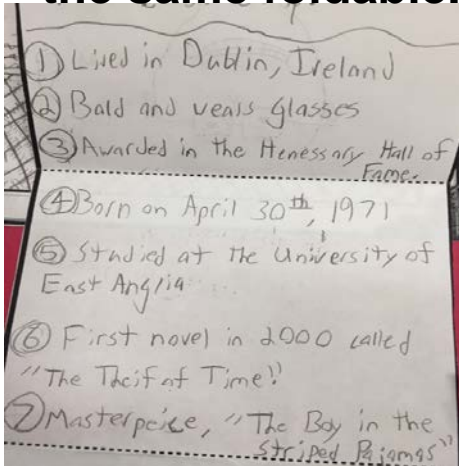 the same foldable.
① Lived in Dublin, Ireland
② Bald and wears glasses
③ Awarded in the Henessary Hall of
Fame.
④ Born on April 30th, 1971
⑤ Studied at the University of
East Anglia
⑥ First novel in 2000 called
"The Theif of Time"
⑦ Masterpeice, "The Boy in the
Striped Pajamas"